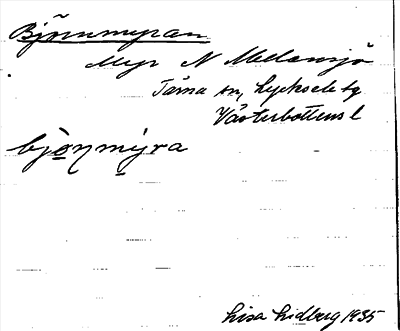 Björnmyran
Myr N Mellansjö
Tärna sn, Lycksele tg
Västerbottens l
bjo̲ŋmy̲ra
Lisa Lidberg 1935